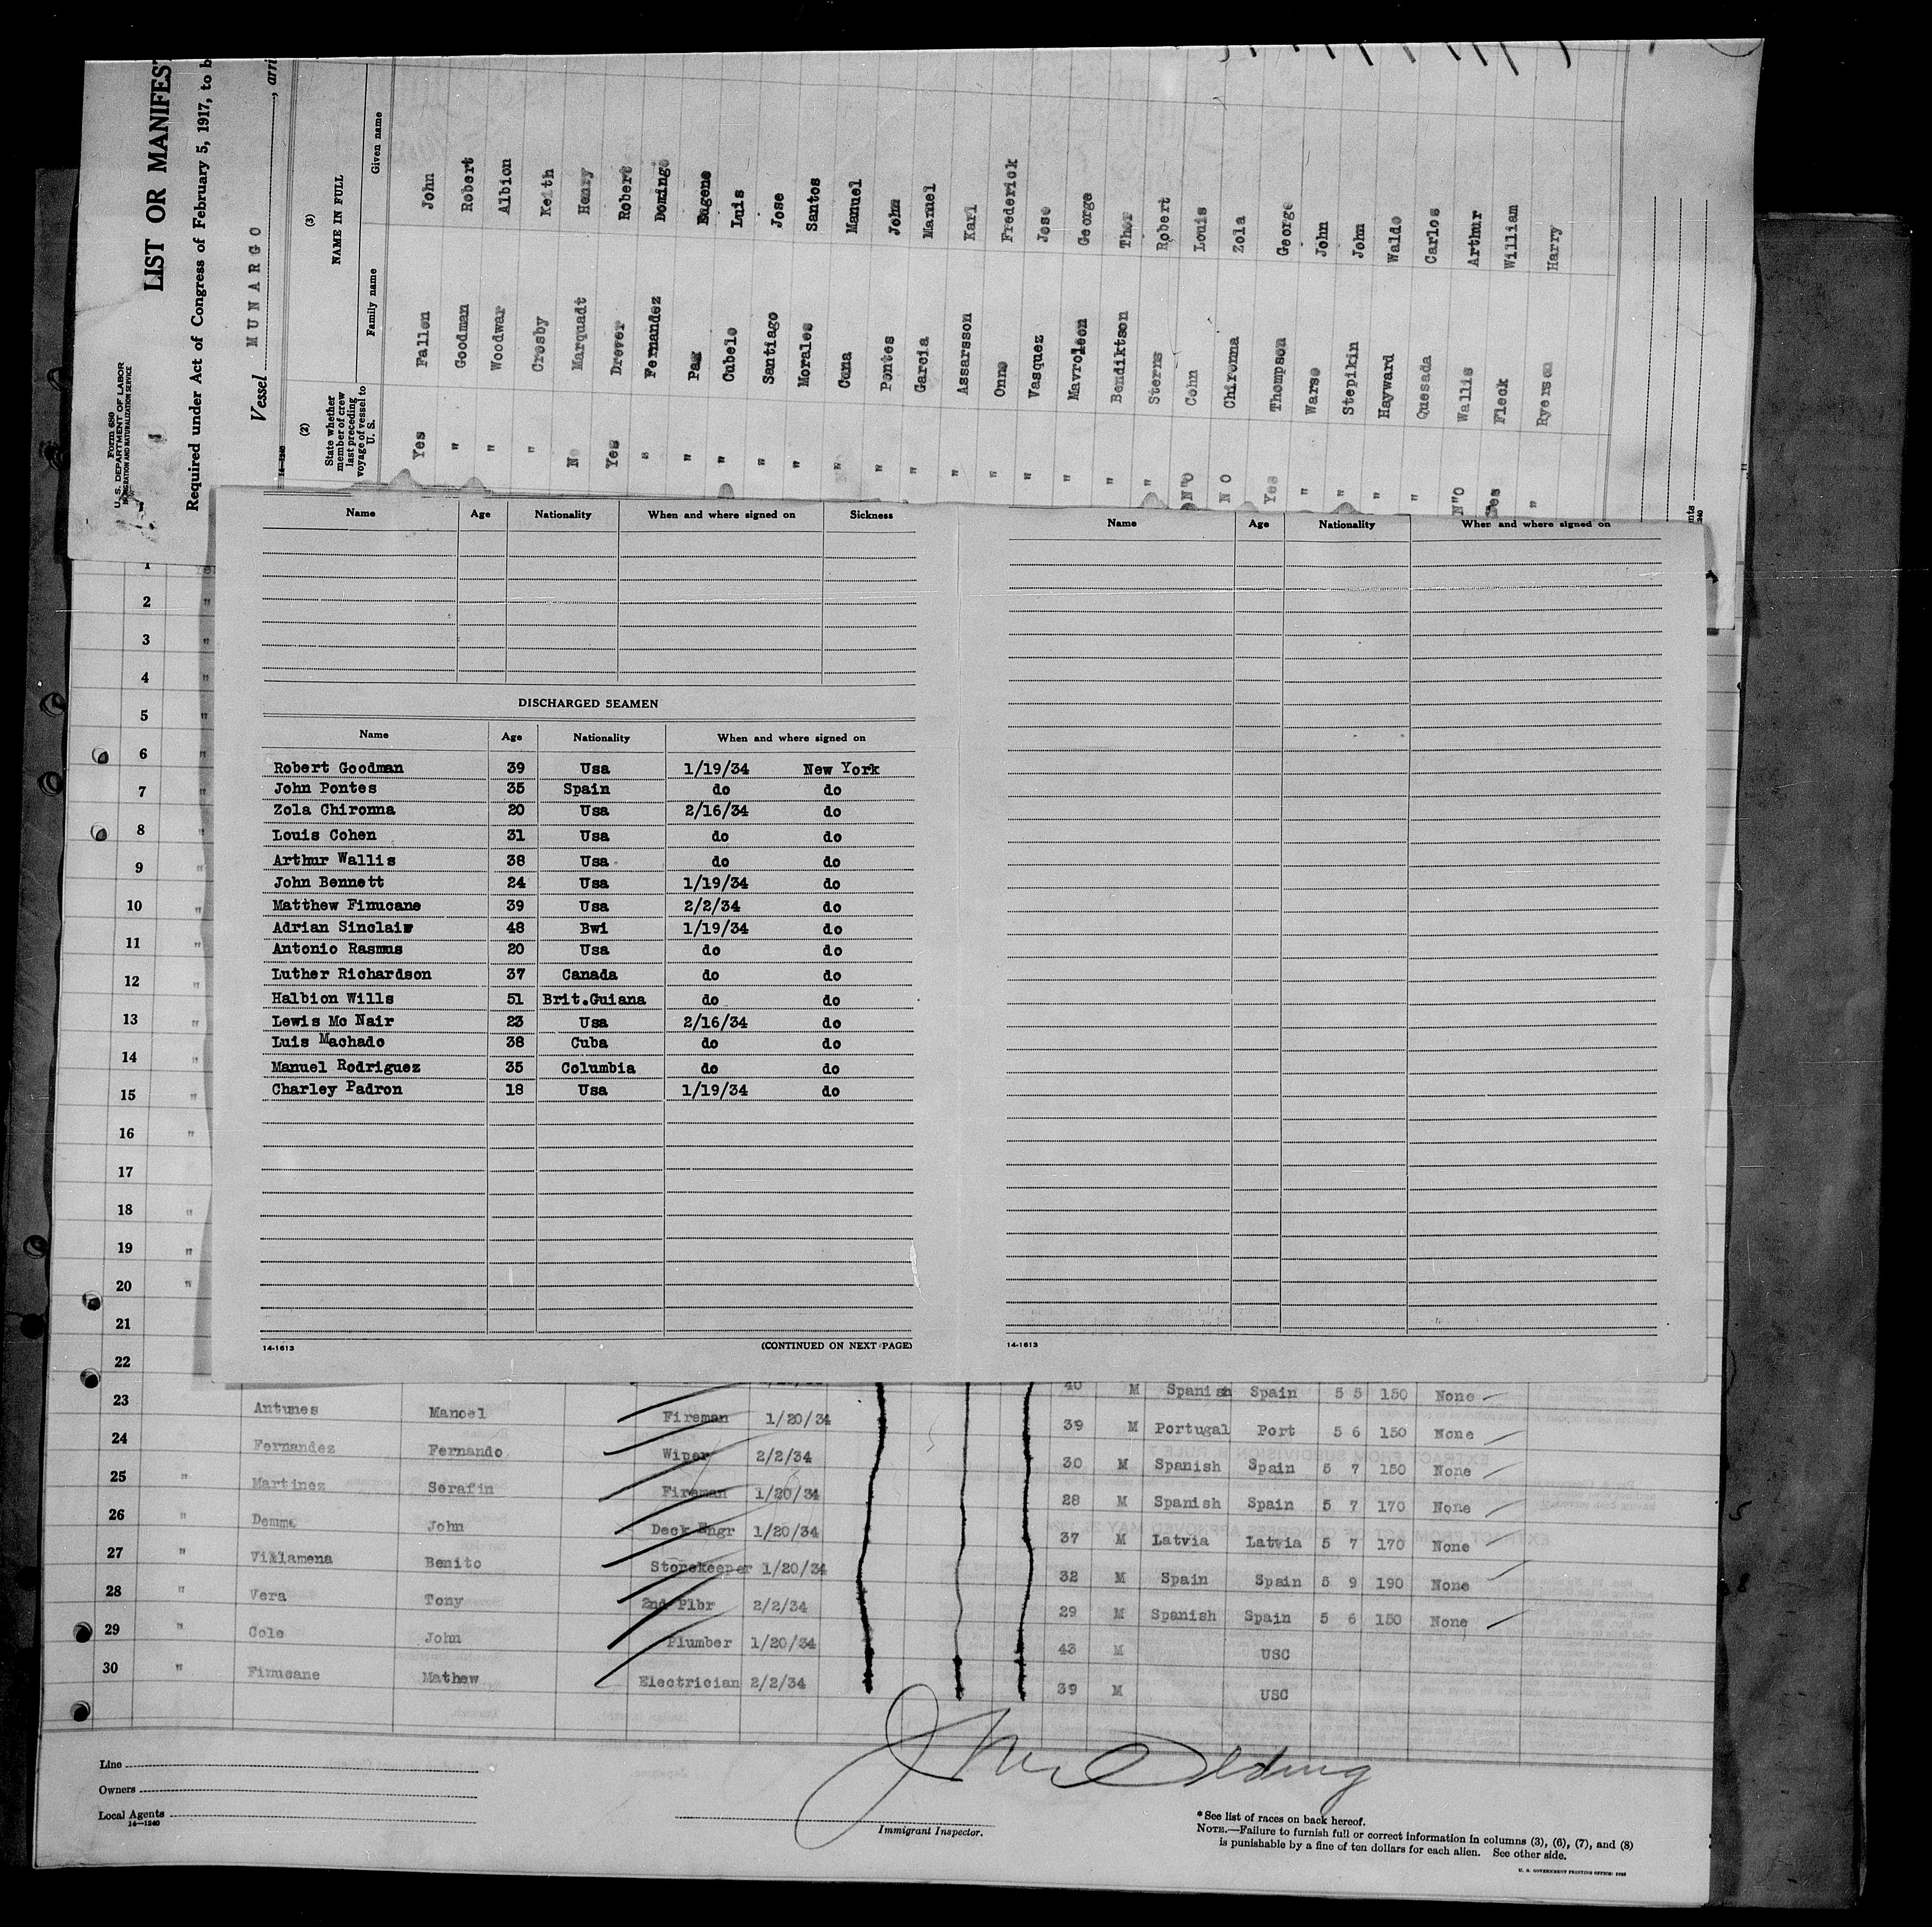 Form 689
U. S. DEPARTMENT OF LABOR
IMMIGRATION AND NATURALIZATION SERVICE
LIST OR MANIFEST
Required under Act of Congress of February 5, 1917, to b
Vessel MUNARGO, arri
14-1240
(2) (3)
State whether member of crew last preceding voyage of vessel to U. S.
NAME IN FULL
Family name Given name
Yes Fallen John
" Goodman Robert
" Woodwar Albion
" Crosby Keith
No Marquadt Henry
Yes Drever Robert
" Fernandez Domingo
" Pag Eugene
" Cubelo Luis
" Santiago Jose
" Morales Santos
" Cuna Manuel
" Pontes John
" Garcia Manuel
" Assarsson Karl
" Onne Frederick
" Vasquez Jose
" Mavroleon George
" Bendiktson Thor
" Sterns Robert
N"O Cohn Louis
N O Chironna Zola
Yes Thompson George
" Warse John
" Stepikin John
" Hayward Waldo
" Quesada Carlos
N"O Wallis Arthur
Yes Fleck William
" Ryerson Harry
Name Age Nationality When and where signed on Sickness
DISCHARGED SEAMEN
Name Age Nationality When and where signed on
Robert Goodman 39 Usa 1/19/34 New York
John Pontes 35 Spain do do
Zola Chironna 20 Usa 2/16/34 do
Louis Cohen 31 Usa do do
Arthur Wallis 38 Usa do do
John Bennett 24 Usa 1/19/34 do
Matthew Finucane 39 Usa 2/2/34 do
Adrian Sinclair 48 Bwi 1/19/34 do
Antonio Rasmus 20 Usa do do
Luther Richardson 37 Canada do do
Halbion Wills 51 Brit.Guiana do do
Lewis Mc Nair 23 Usa 2/16/34 do
Luis Machado 38 Cuba do do
Manuel Rodriguez 35 Columbia do do
Charley Padron 18 Usa 1/19/34 do
14-1613 (CONTINUED ON NEXT PAGE)
Name Age Nationality When and where signed on
14-1613
1
2 "
3 "
4 "
5 "
6 "
7 "
8 "
9 "
10 "
11 "
12 "
13 "
14 "
15 "
16 "
17
18 "
19 "
20 "
21
22
40 M Spanish Spain 5 5 150 None
23 Antunes Manoel Fireman 1/20/34 39 M Portugal Port 5 6 150 None
24 Fernandez Fernando Wiper 2/2/34 30 M Spanish Spain 5 7 150 None
25 " Martinez Serafin Fireman 1/20/34 28 M Spanish Spain 5 7 170 None
26 " Demme John Deck Engr 1/20/34 37 M Latvia Latvia 5 7 170 None
27 " Villamena Benito Storekeeper 1/20/34 32 M Spain Spain 5 9 190 None
28 " Vera Tony 2nd Plbr 2/2/34 29 M Spanish Spain 5 6 150 None
29 " Cole John Plumber 1/20/34 43 M USC
30 " Finucane Mathew Electrician 2/2/34 39 M USC
Line
Owners
Local Agents
14-1240
Immigrant Inspector.
* See list of races on back hereof.
NOTE.—Failure to furnish full or correct information in columns (3), (6), (7), and (8)
is punishable by a fine of ten dollars for each alien. See other side.
U. S. GOVERNMENT PRINTING OFFICE: 1933